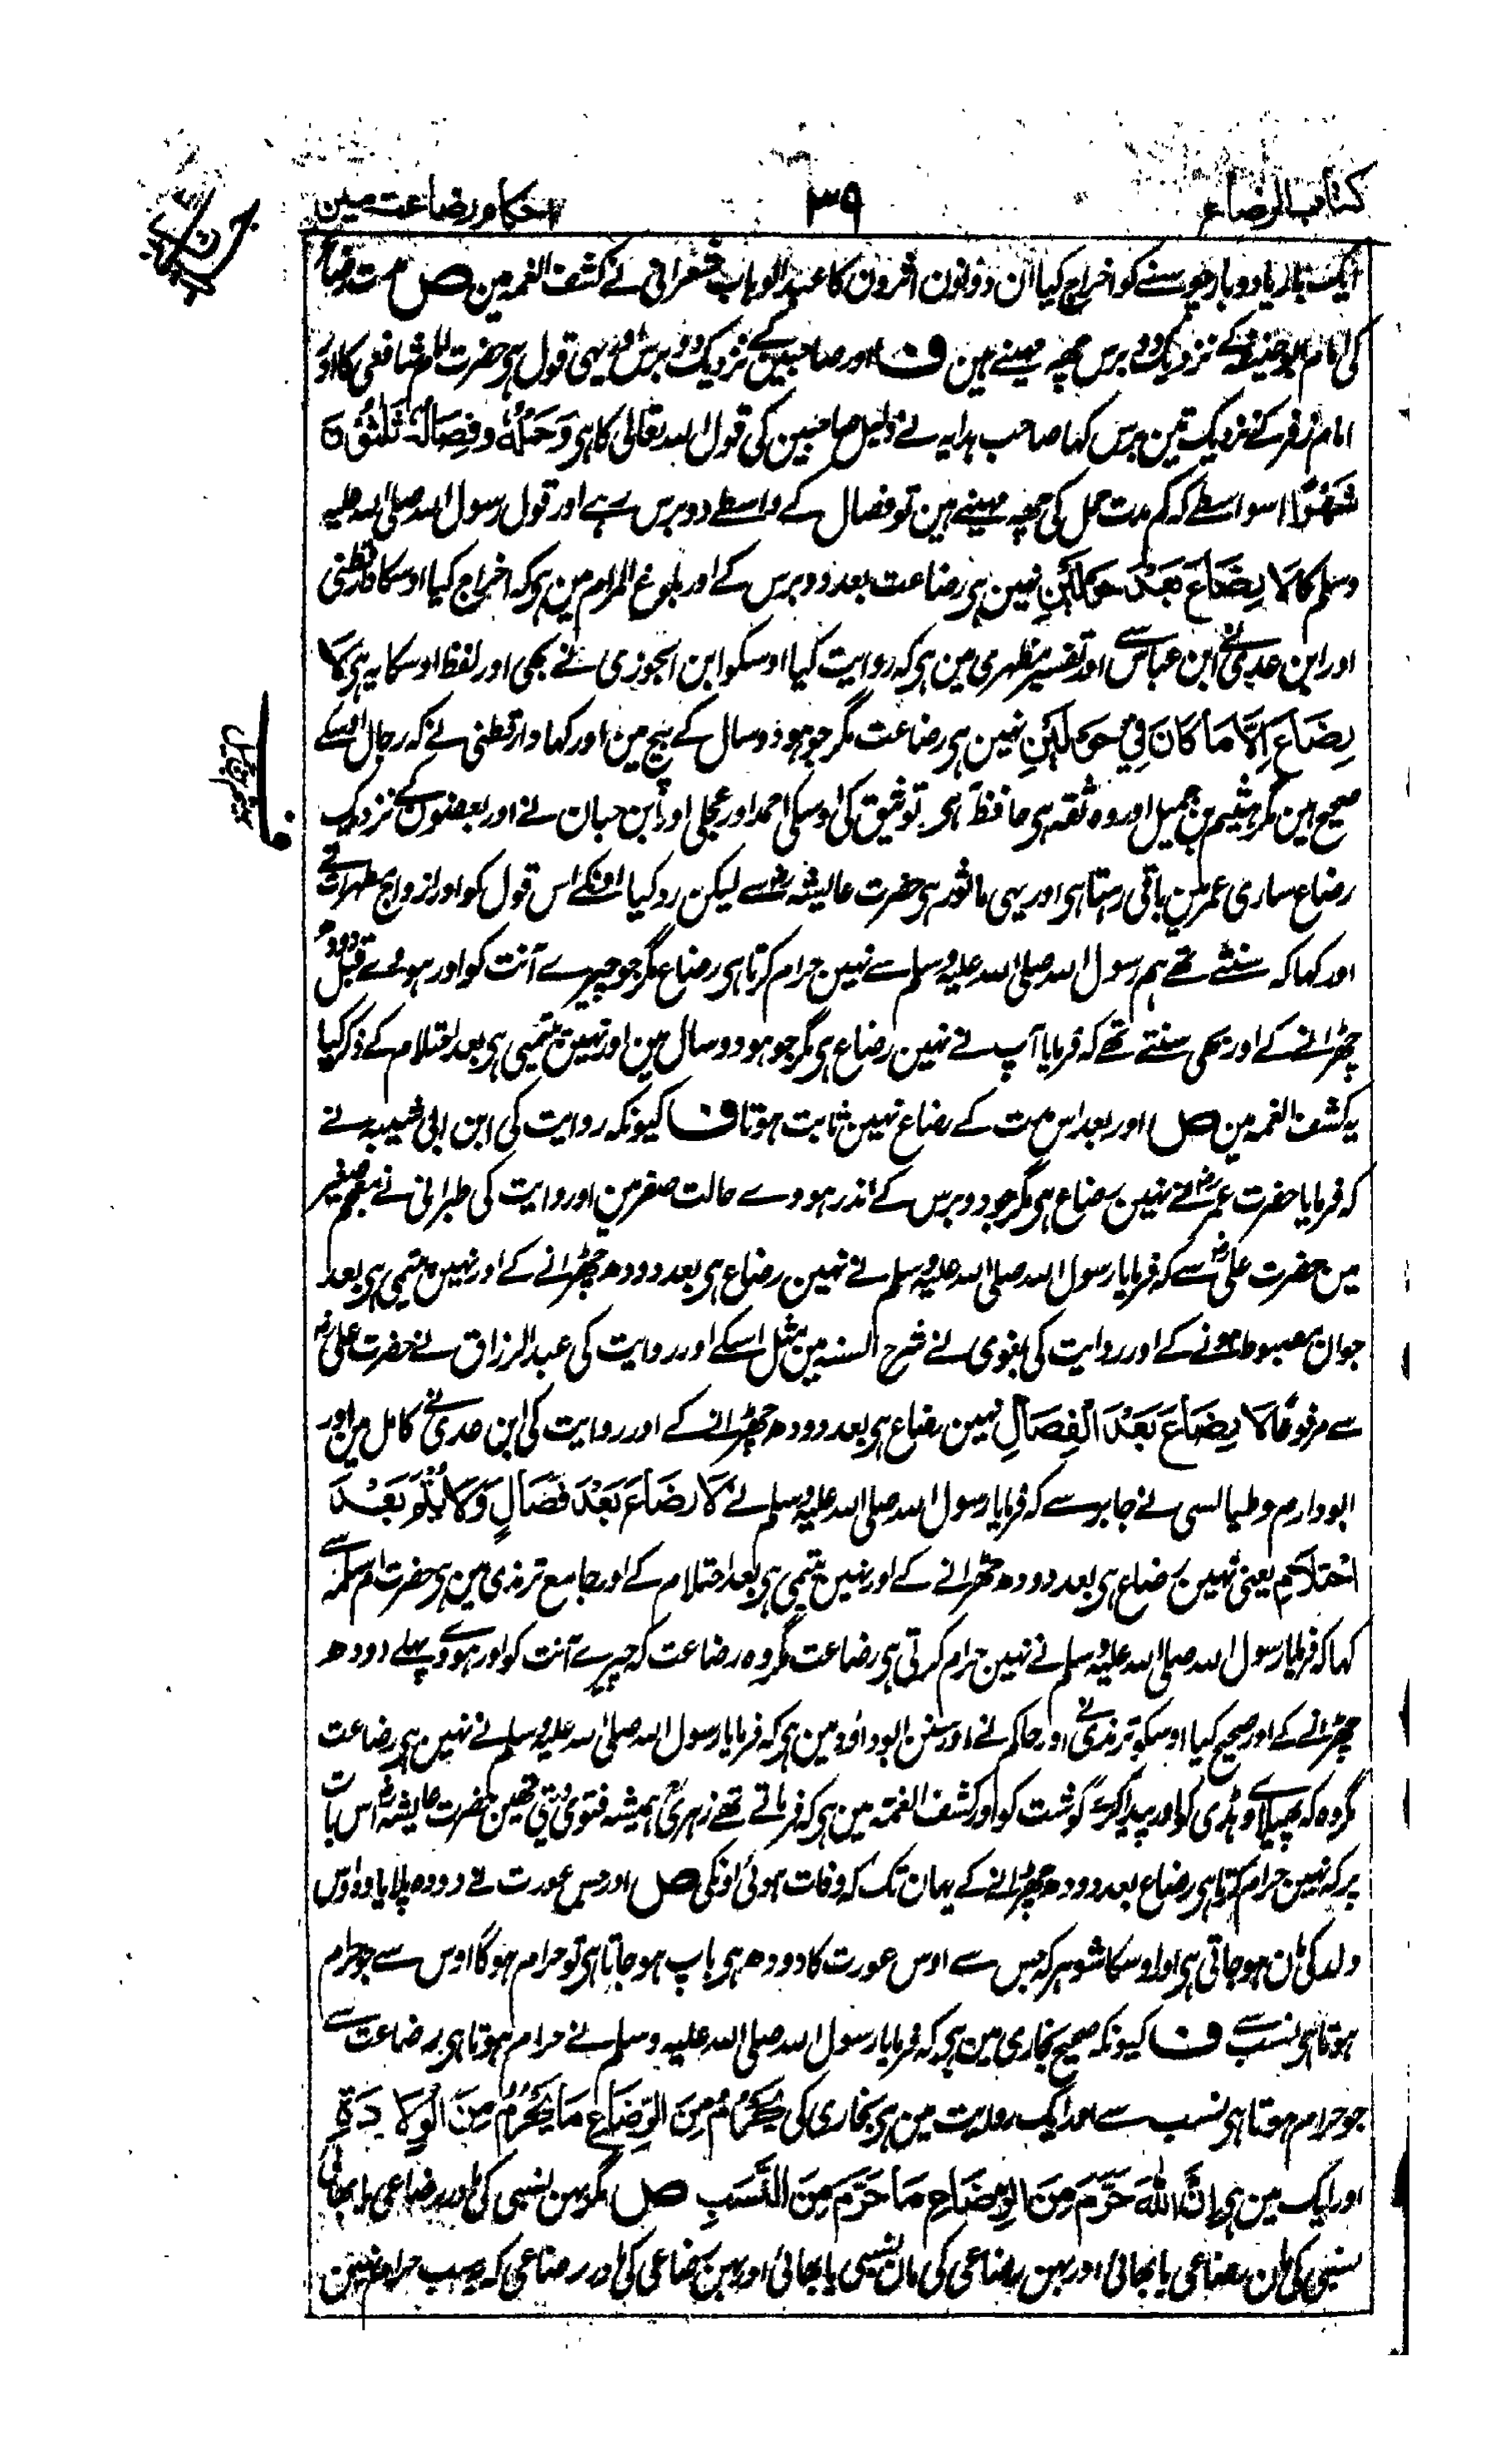 کتاب الرضاع
۳۹
احکام رضاعت مین
ایک بار یا دو بار چوسنے کو اخراج کیا ان دونون اثرون کا عبدالوہاب شعرانی نے کشف الغمہ مین ص مدت رضاع
کی امام ابو حنیفہ کے نزدیک دو برس چھ مہینے ہین ف اور صاحبین کے نزدیک دو برس اور یہی قول ہی حضرت امام شافعی کا اور
امام زفر کے نزدیک تین برس کہا صاحب ہدایہ نے دلیل صاحبین کی قول اللہ تعالی کا ہی وَحَمْلُهٗ وَفِصَالُهٗ ثَلٰثُوْنَ
شَهْرًا اسواسطے کہ کم مدت حمل کی چھ مہینے ہین تو فصال کے واسطے دو برس رہے اور قول رسول اللہ صلی اللہ علیہ
وسلم کا لَا رِضَاعَ بَعْدَ حَوْلَيْنِ نہین ہی رضاعت بعد دو برس کے اور بلوغ المرام مین ہی کہ اخراج کیا اوسکا دارقطنی
اور ابن عدی نے ابن عباس سے اور تفسیر مظہری مین ہی کہ روایت کیا اوسکو ابن الجوزی نے بھی اور لفظ اوسکا یہ ہی لَا
رِضَاعَ اِلَّا مَا كَانَ فِيْ حَوْلَيْنِ نہین ہی رضاعت مگر جو ہو دو سال کے بیچ مین اور کہا دارقطنی نے کہ رجال اسکے
صحیح ہین مگر ہشیم بن جمیل اور وہ ثقہ ہی حافظ ہی توثیق کی اوسکی احمد اور عجلی اور ابن حبان نے اور بعضون کے نزدیک
رضاع ساری عمر مین باقی رہتا ہی اور یہی ماثور ہی حضرت عایشہ رض سے لیکن رد کیا اونکے اس قول کو اور ازواج مطہرات نے
اور کہا کہ سنتے تھے ہم رسول اللہ صلی اللہ علیہ وسلم سے نہین حرام کرتا ہی رضاع مگر جو چیرے آنت کو اور ہووے قبل دودھ
چھڑانے کے اور بھی سنتے تھے کہ فرمایا آپ نے نہین رضاع ہی مگر جو ہو دو سال مین اور نہین یتیمی ہی بعد احتلام کے ذکر کیا
یہ کشف الغمہ مین ص اور بعد اس مدت کے رضاع نہین ثابت ہوتا ف کیونکہ روایت کی ابن ابی شیبہ نے
کہ فرمایا حضرت عمر رض نے نہین رضاع ہی مگر جو دو برس کے اندر ہووے حالت صغر مین اور روایت کی طبرانی نے معجم صغیر
مین حضرت علی رض سے کہ فرمایا رسول اللہ صلی اللہ علیہ وسلم نے نہین رضاع ہی بعد دودھ چھڑانے کے اور نہین یتیمی ہی بعد
جوان مضبوط ہونے کے اور روایت کی بغوی نے شرح السنہ مین مثل اسکے اور روایت کی عبدالرزاق نے حضرت علی رض
سے مرفوعًا لَا رِضَاعَ بَعْدَ الْفِصَالِ نہین رضاع ہی بعد دودھ چھڑانے کے اور روایت کی ابن عدی نے کامل مین اور
ابو دارم وطیالسی نے جابر سے کہ فرمایا رسول اللہ صلی اللہ علیہ وسلم نے لَا رِضَاعَ بَعْدَ فِصَالٍ وَلَا يُتْمَ بَعْدَ
احْتِلَامٍ یعنی نہین رضاع ہی بعد دودھ چھڑانے کے اور نہین یتیمی ہی بعد احتلام کے اور جامع ترمذی مین ہی حضرت ام سلمہ سے
کہا کہ فرمایا رسول اللہ صلی اللہ علیہ وسلم نے نہین حرام کرتی ہی رضاعت مگر وہ رضاعت کہ چیرے آنت کو اور ہووے پہلے دودھ
چھڑانے کے اور صحیح کیا اوسکو ترمذی نے اور حاکم نے اور سنن ابوداؤد مین ہی کہ فرمایا رسول اللہ صلی اللہ علیہ وسلم نے نہین ہی رضاعت
مگر وہ کہ پھیلاوے ہڈی کو اور پیدا کرے گوشت کو اور کشف الغمہ مین ہی کہ فرماتے تھے زہری ہمیشہ فتوی دیتی تھین حضرت عایشہ رض اس بات
پر کہ نہین حرام کرتا ہی رضاع بعد دودھ چھڑانے کے یہان تک کہ وفات ہوئی اونکی ص اور جس عورت نے دودہ پلایا وہ اوس
ولد کی مان ہو جاتی ہی اور اوسکا شوہر کہ جس سے اوس عورت کا دودھ ہی باپ ہو جاتا ہی تو حرام ہوگا اوس سے جو حرام
ہوتا ہی نسب سے ف کیونکہ صحیح بخاری مین ہی کہ فرمایا رسول اللہ صلی اللہ علیہ وسلم نے حرام ہوتا ہی رضاعت سے
جو حرام ہوتا ہی نسب سے اور ایک روایت مین ہی بخاری کی يَحْرُمُ مِنَ الرِّضَاعِ مَا يَحْرُمُ مِنَ الْوِلَادَةِ
اور ایک مین ہی اِنَّ اللّٰهَ حَرَّمَ مِنَ الرِّضَاعِ مَا حَرَّمَ مِنَ النَّسَبِ ص مگر بہن نسبی کی مادر رضاعی یا بھائی
نسبی کی مان رضاعی یا بھائی اور بہن رضاعی کی مان نسبی یا بھائی اور بہن رضاعی کی مادر رضاعی کہ یہ سب حرام نہین